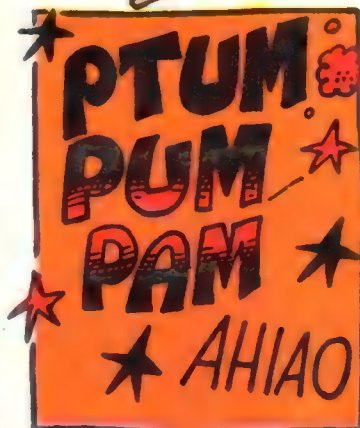 PTUM
PUM
PAM
AHIAO